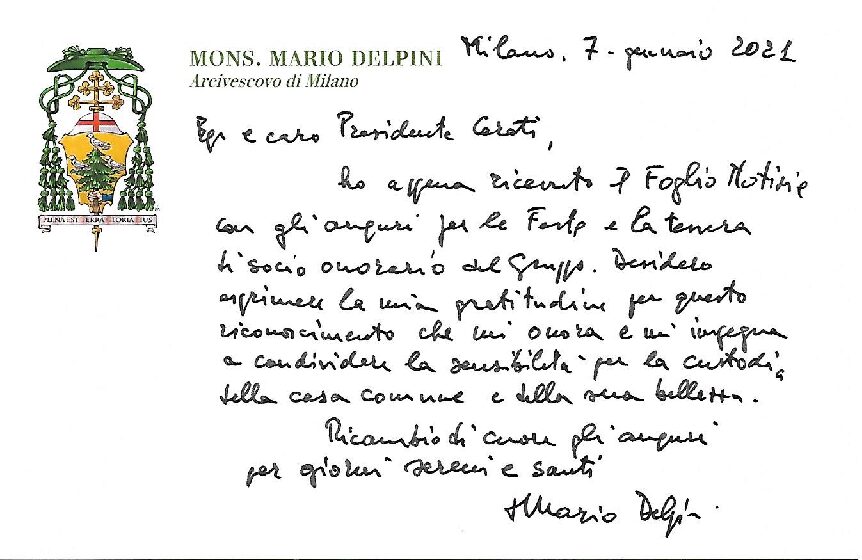 MONS. MARIO DELPINI
Arcivescovo di Milano
Milano, 7 - gennaio 2021
PLENA EST TERRA GLORIA EIUS
Egr e caro Presidente Cerati,
ho appena ricevuto il Foglio Notizie
con gli auguri per le Feste e la tessera
di socio onorario del Gruppo. Desidero
esprimere la mia gratitudine per questo
riconoscimento che mi onora e mi impegna
a condividere la sensibilità per la custodia
della casa comune e della sua bellezza.
Ricambio di cuore gli auguri
per giorni sereni e santi
+ Mario Delpini